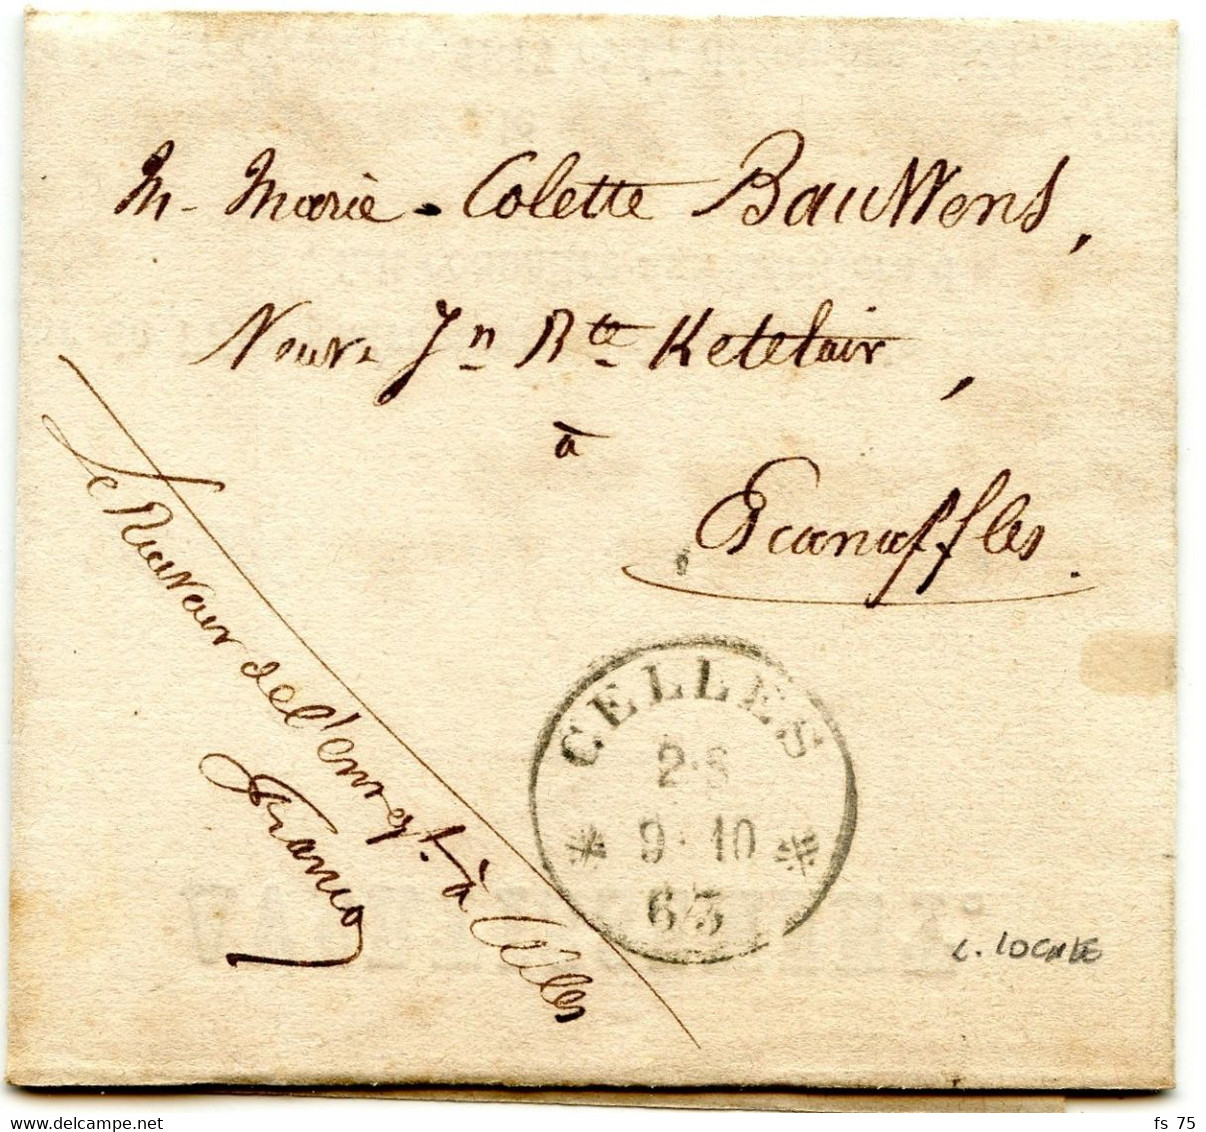 M. Marie-Colette Bauwens,
Veuve Jn Bte Ketelair,
à
Escanaffles.
Le Receveur de l'enregt. à Celles
Franco
CELLES
2·S
9·10
63
L. LOCALE
fs 75